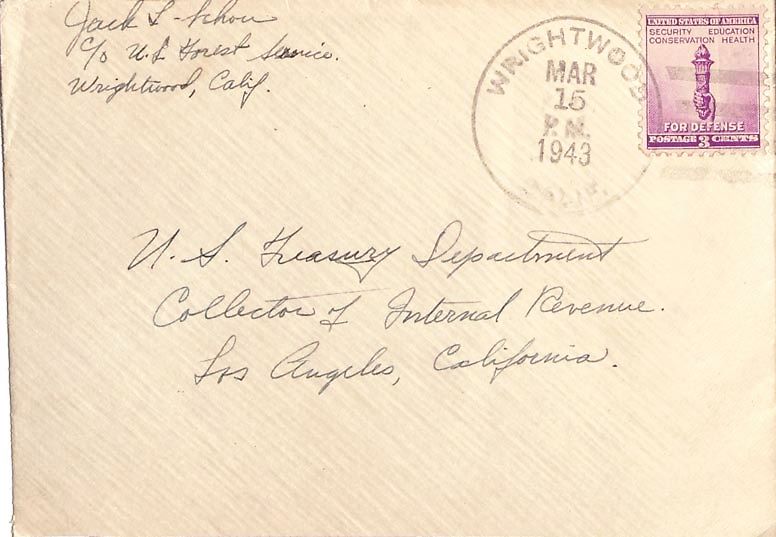 Jack L. Schou
c/o U.S. Forest Service.
Wrightwood, Calif.
WRIGHTWOOD
MAR
15
P.M.
1943
CALIF.
UNITED STATES OF AMERICA
SECURITY EDUCATION
CONSERVATION HEALTH
FOR DEFENSE
POSTAGE 3 CENTS
U. S. Treasury Department
Collector of Internal Revenue.
Los Angeles, California.